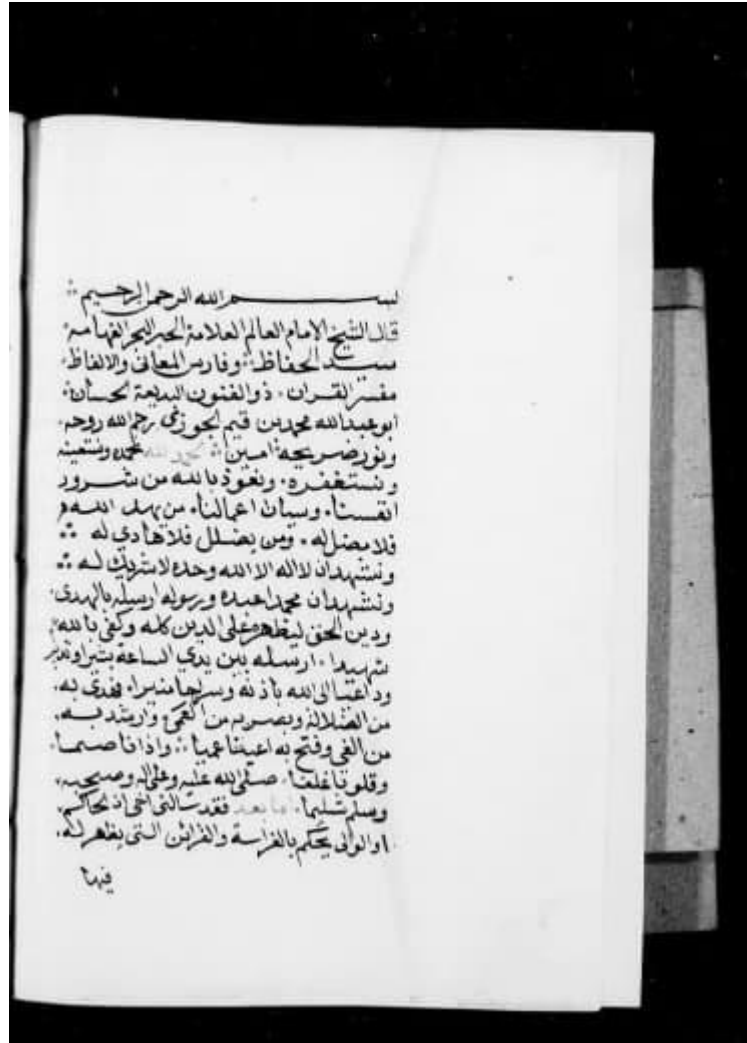 بسم الله الرحمن الرحيم
قال الشيخ الامام العالم العلامة الحبر البحر الفهامة
سيد الحفاظ وفارس المعاني والالفاظ
مفسر القران ذو الفنون البديعة الحسان
ابو عبدالله محمد بن قيم الجوزي رحم الله روحه
ونور ضريحه امين الحمد لله نحمده ونستعينه
ونستغفره ونعوذ بالله من شرور
انفسنا وسيات اعمالنا من يهد الله
فلا مضل له ومن يضلل فلا هادي له
ونشهد ان لا اله الا الله وحده لا شريك له
ونشهد ان محمدا عبده ورسوله ارسله بالهدى
ودين الحق ليظهره على الدين كله وكفى بالله
شهيدا ارسله بين يدي الساعة بشيرا ونذير
وداعيا الى الله باذنه وسراجا منيرا فهدى به
من الضلالة وبصر به من العمى وارشد به
من الغي وفتح به اعينا عميا واذانا صما
وقلوبا غلفا صلى الله عليه وعلى اله وصحبه
وسلم تسليما اما بعد فقد سالني اخي الحاكم
او الوالي يحكم بالفراسة والقرائن التي يظهر له
فيها